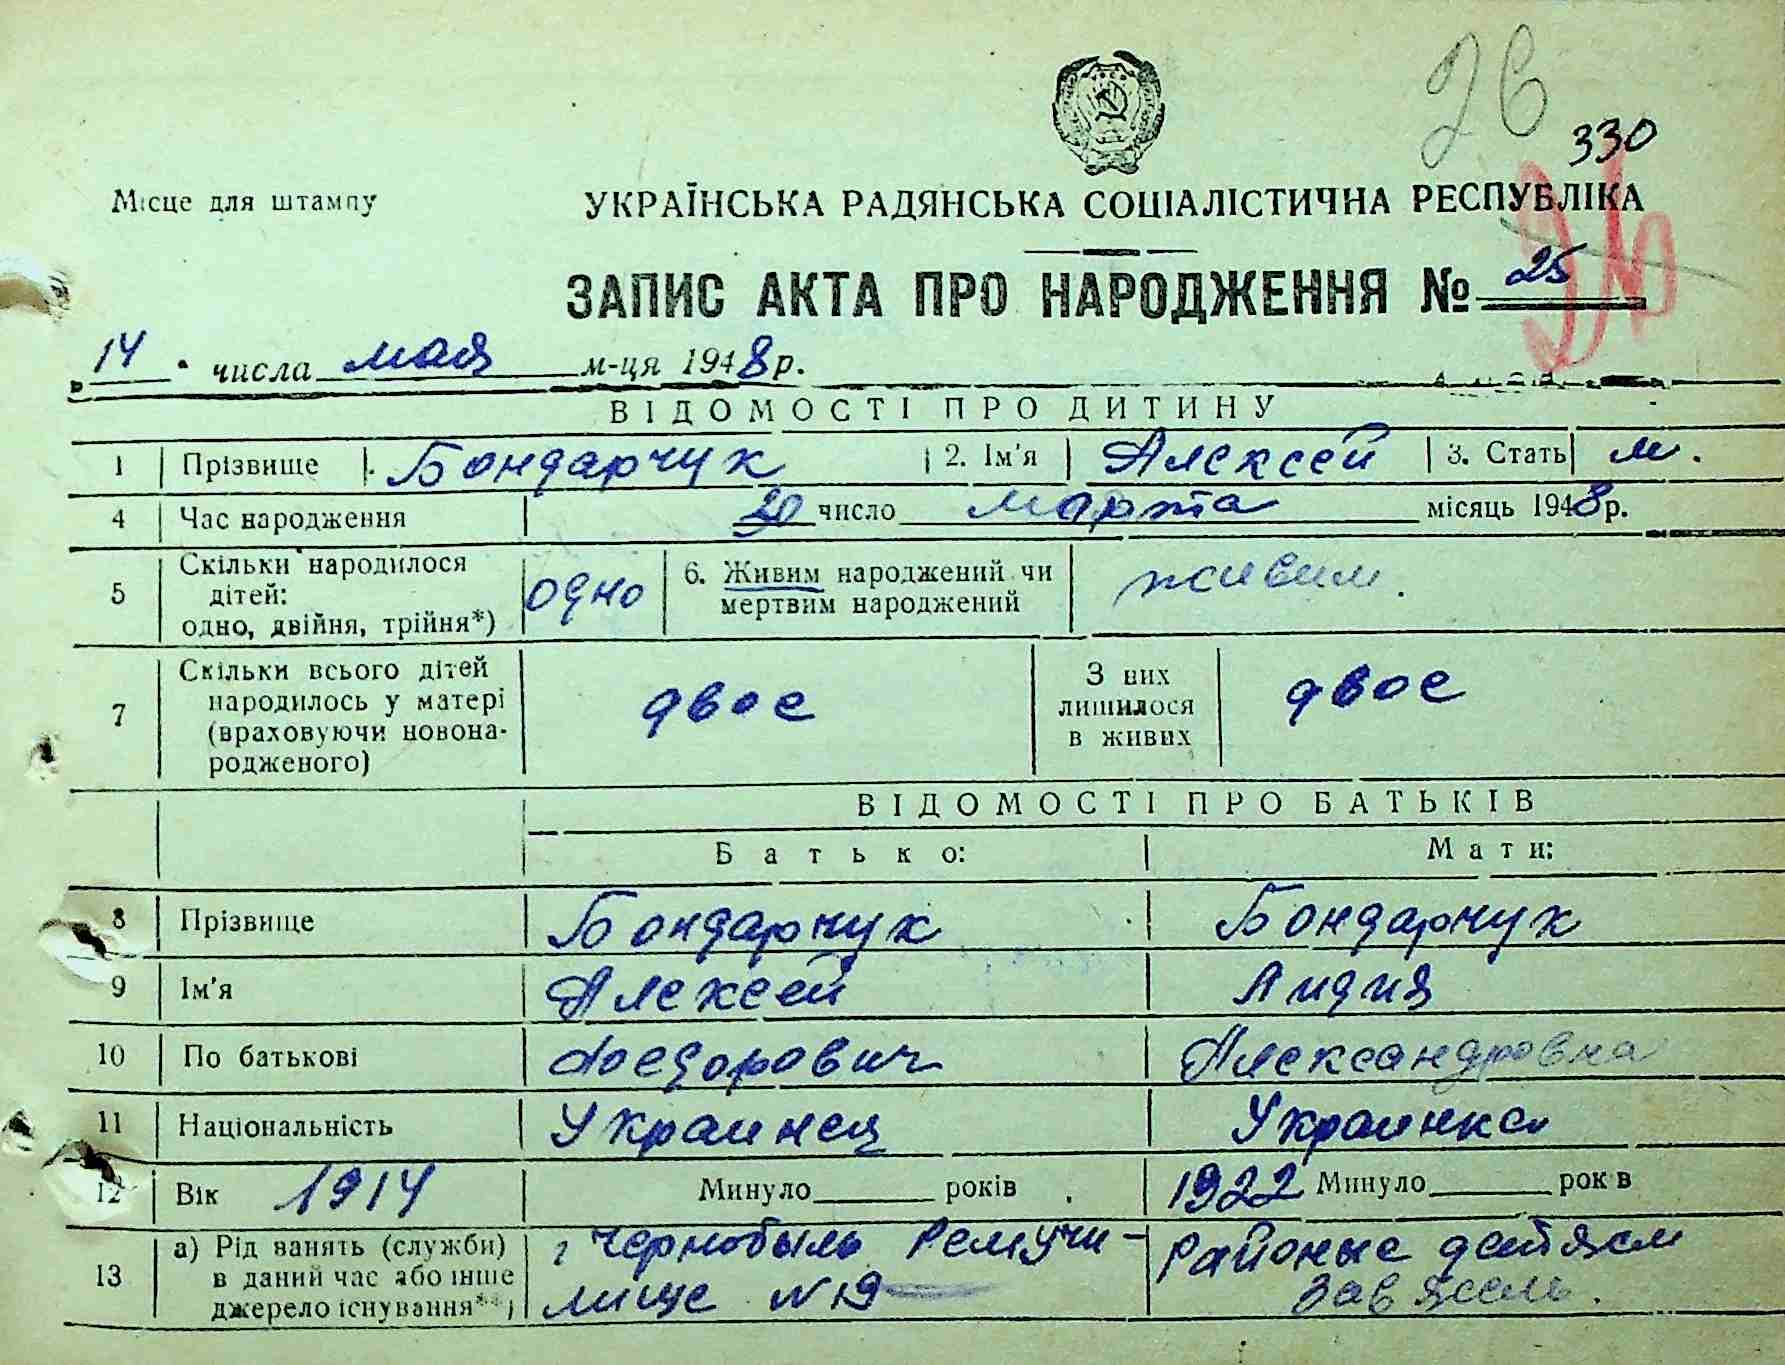 26
330
Місце для штампу
УКРАЇНСЬКА РАДЯНСЬКА СОЦІАЛІСТИЧНА РЕСПУБЛІКА
26
ЗАПИС АКТА ПРО НАРОДЖЕННЯ № 25
„ 14 " числа мая м-ця 1948 р.
ВІДОМОСТІ ПРО ДИТИНУ
1 Прізвище Бондарчук 2. Ім'я Алексей 3. Стать м.
4 Час народження 20 число марта місяць 1948 р.
5 Скільки народилося дітей: одно, двійня, трійня*) одно 6. Живим народжений чи мертвим народжений живим.
7 Скільки всього дітей народилось у матері (враховуючи новонародженого) двое З них лишилося в живих двое
ВІДОМОСТІ ПРО БАТЬКІВ
Батько: Мати:
8 Прізвище Бондарчук Бондарчук
9 Ім'я Алексей Лидия
10 По батькові Фоедорович Александровна
11 Національність Украинец Украинка
12 Вік 1914 Минуло ____ років 1922 Минуло ____ років
13 а) Рід занять (служби) в даний час або інше джерело існування**) г Чернобыль Ремучи-
лище N 19 Районые